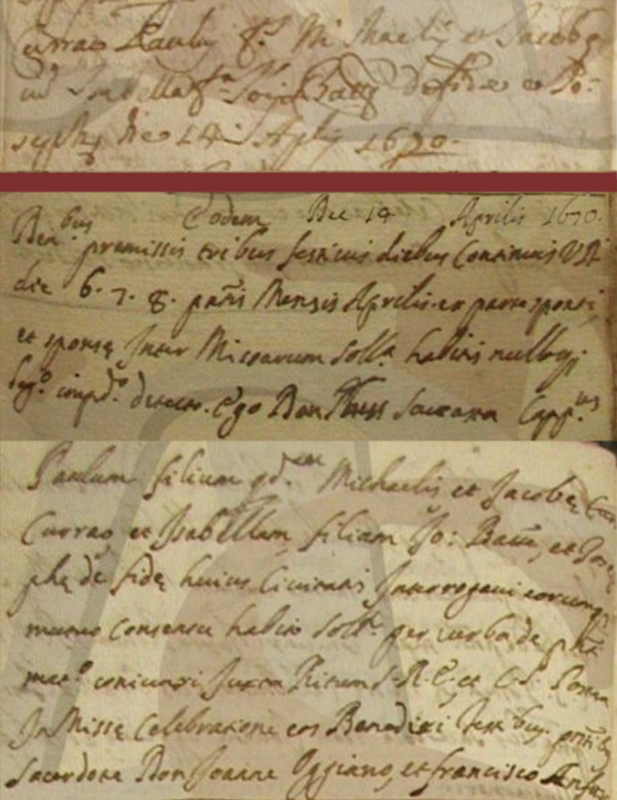 Currao Pauly f. Michaelis et Jacobę
cū Isabella f. Jo: Bapt. de fide et Jo-
sephę Die 14 Aprilis 1670.
Eodem Die 14 Aprilis 1670.
Ben. bus premissis tribus festiuis diebus Continuis Vz
die 6. 7. 8. pntis Mensis Aprilis ex parte sponsi
et sponsę Inter Missarum soll. habitis nulloq;
leg.º impd.º detecto. Ego Don Cappnus
Paulum filium qd. Michaelis et Jacobę Cur
Currao et Isabellam filiam Jo: Bapt. et Jose
phę de fide huius Ciuitatis Interrogaui eorumq
mutuo consensu habito soll. per uerba de pnti
mat.º coniunxi Juxta Ritum S. R. E. et C. T. Postea
In Missę Celebratione eos Benedixi Test. bus pntibus
Sacerdote Don Joanne Oggiano, et francisco